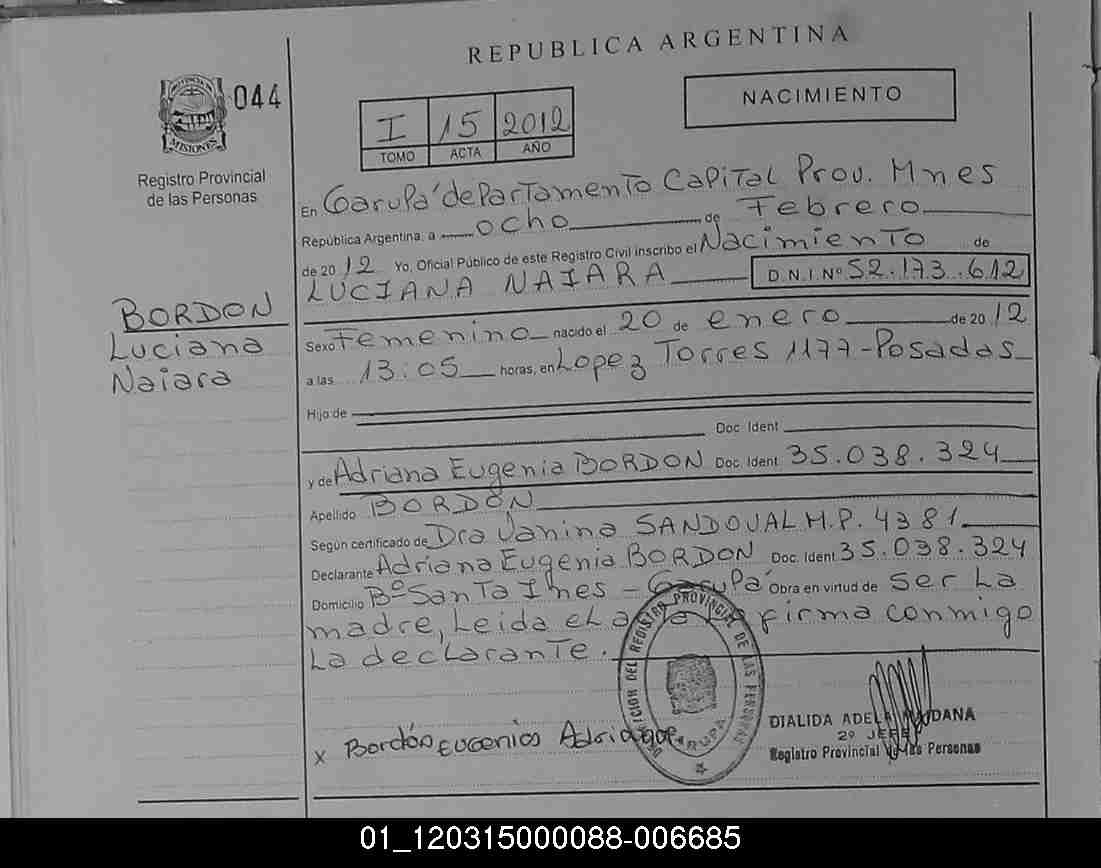 REPUBLICA ARGENTINA
PROVINCIA DE
MISIONES
044
Registro Provincial
de las Personas
I 15 2012
TOMO ACTA AÑO
NACIMIENTO
En Garupá departamento Capital Prov. Mnes
República Argentina, a ocho de Febrero
de 2012 Yo, Oficial Público de este Registro Civil inscribo el Nacimiento de
LUCIANA NAIARA D.N.I. Nº 52.173.612
BORDON
Luciana
Naiara
Sexo Femenino nacido el 20 de enero de 2012
a las 13:05 horas, en Lopez Torres 1177-Posadas
Hijo de
Doc. Ident
y de Adriana Eugenia BORDON Doc. Ident 35.038.324
Apellido BORDON
Según certificado de Dra Vanina SANDOVAL M.P. 4381
Declarante Adriana Eugenia BORDON Doc. Ident 35.038.324
Domicilio Bº Santa Ines - Garupá Obra en virtud de ser la
madre, Leida el acta la firma conmigo
la declarante.
DEL REGISTRO PROVINCIAL DE LAS PERSONAS
GARUPA
DIALIDA ADELA
2º JEFE
Registro Provincial de las Personas
x Bordón Eugenia Adriana
01_120315000088-006685